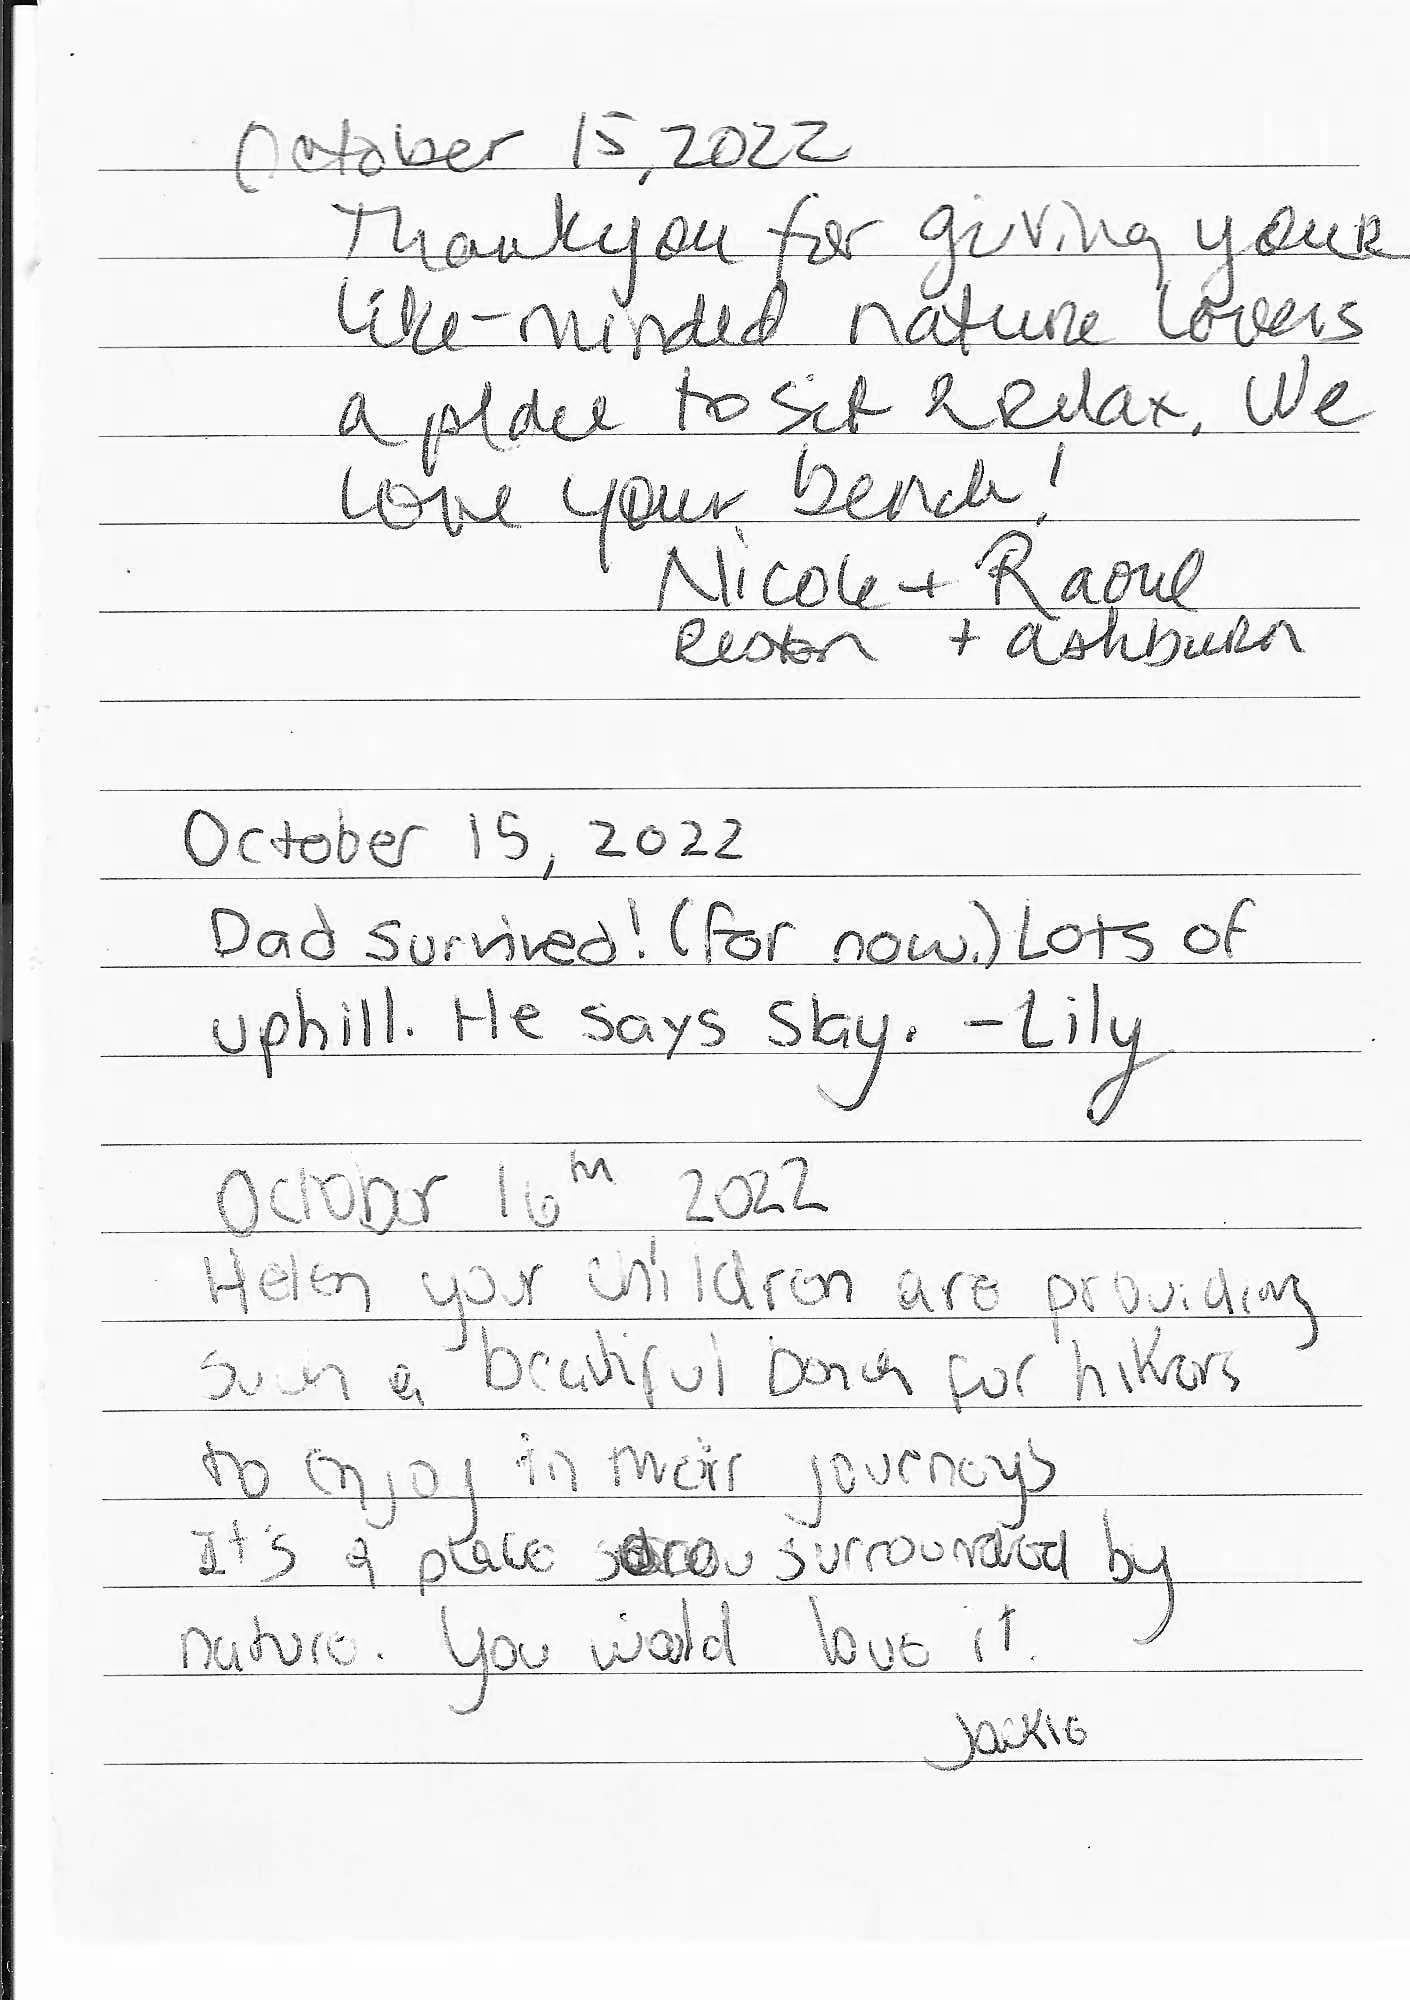 October 15, 2022
Thankyou for giving your
like-minded nature lovers
a place to sit & Relax. We
love your bench!
Nicole + Raoul
Reston + Ashburn
October 15, 2022
Dad survived! (for now.) Lots of
uphill. He says slay. - Lily
October 16th 2022
Helen your children are providing
such a beautiful bench for hikers
to enjoy in their journeys
It's a place surrounded by
nature. You would love it.
Jackie